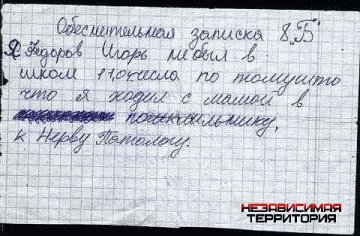 Обеснительная записка 8 "Б"
Я Федоров Игорь не был в
школ 11.04 числа по томушто
что я ходил с мамой в
поликлильнику,
к Нерву Потологу.
НЕЗАВИСИМАЯ
ТЕРРИТОРИЯ